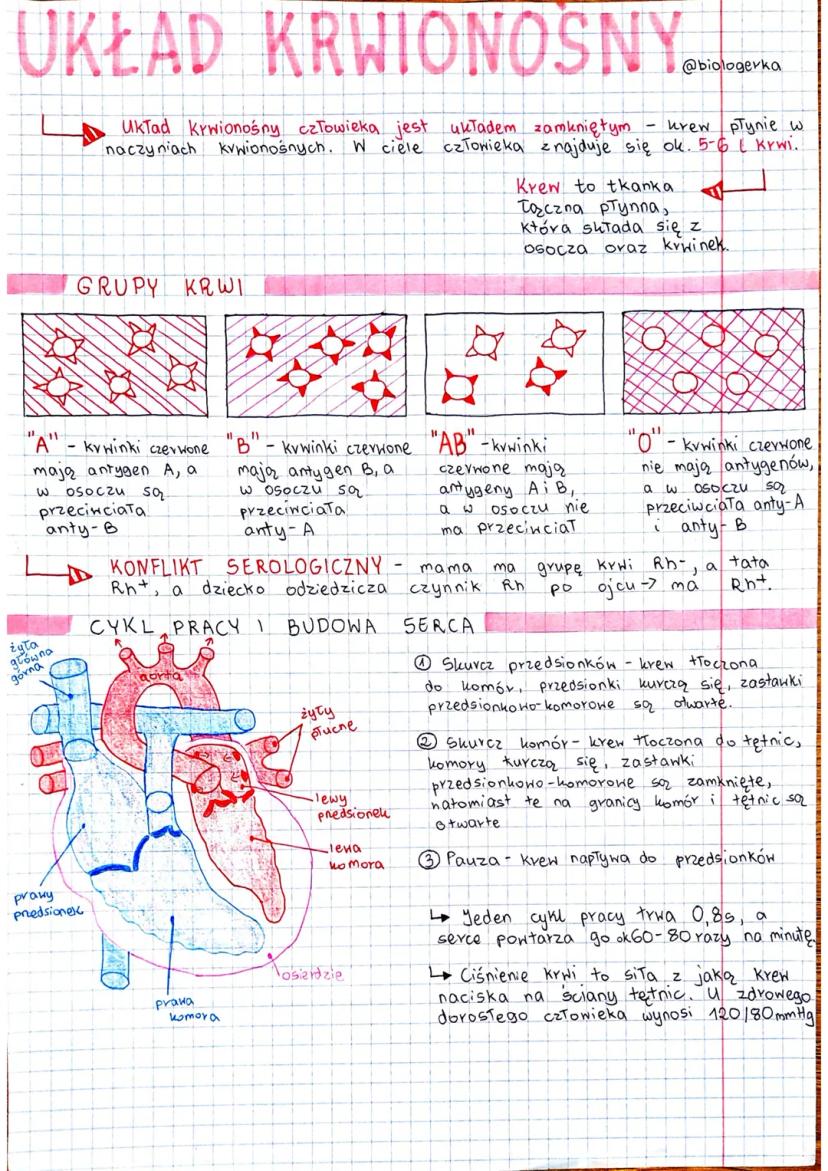 UKŁAD KRWIONOŚNY
@biologerka
Układ krwionośny człowieka jest układem zamkniętym - krew płynie w
naczyniach krwionośnych. W ciele człowieka znajduje się ok. 5-6 l krwi.
Krew to tkanka
łączna płynna,
która składa się z
osocza oraz krwinek.
GRUPY KRWI
"A" - krwinki czerwone
mają antygen A, a
w osoczu są
przeciwciała
anty-B
"B" - krwinki czerwone
mają antygen B, a
w osoczu są
przeciwciała
anty-A
"AB" - krwinki
czerwone mają
antygeny A i B,
a w osoczu nie
ma przeciwciał
"O" - krwinki czerwone
nie mają antygenów,
a w osoczu są
przeciwciała anty-A
i anty-B
KONFLIKT SEROLOGICZNY - mama ma grupę krwi Rh-, a tata
Rh+, a dziecko odziedzicza czynnik Rh po ojcu → ma Rh+.
CYKL PRACY I BUDOWA SERCA
żyła
główna
górna
aorta
żyły
płucne
lewy
przedsionek
lewa
komora
prawy
przedsionek
prawa
komora
osierdzie
① Skurcz przedsionków - krew tłoczona
do komór, przedsionki kurczą się, zastawki
przedsionkowo-komorowe są otwarte.
② Skurcz komór - krew tłoczona do tętnic,
komory kurczą się, zastawki
przedsionkowo-komorowe są zamknięte,
natomiast te na granicy komór i tętnic są
otwarte
③ Pauza - krew napływa do przedsionków
↳ Jeden cykl pracy trwa 0,8s, a
serce powtarza go ok 60-80 razy na minutę
↳ Ciśnienie krwi to siła z jaką krew
naciska na ściany tętnic. U zdrowego
dorosłego człowieka wynosi 120/80 mmHg